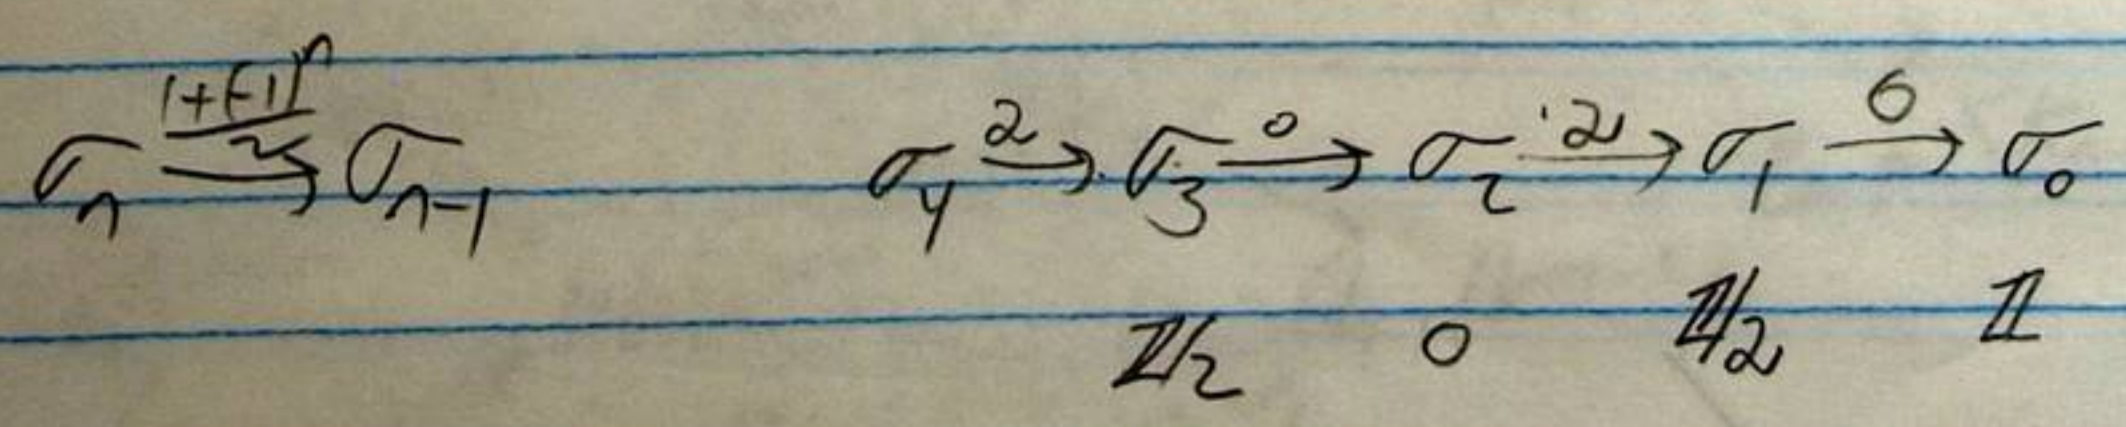 σₙ \xrightarrow{\frac{1+(-1)^n}{2}} σₙ₋₁    σ₄ \xrightarrow{2} σ₃ \xrightarrow{0} σ₂ \xrightarrow{·2} σ₁ \xrightarrow{0} σ₀
ℤ/2    0    ℤ/2    ℤ